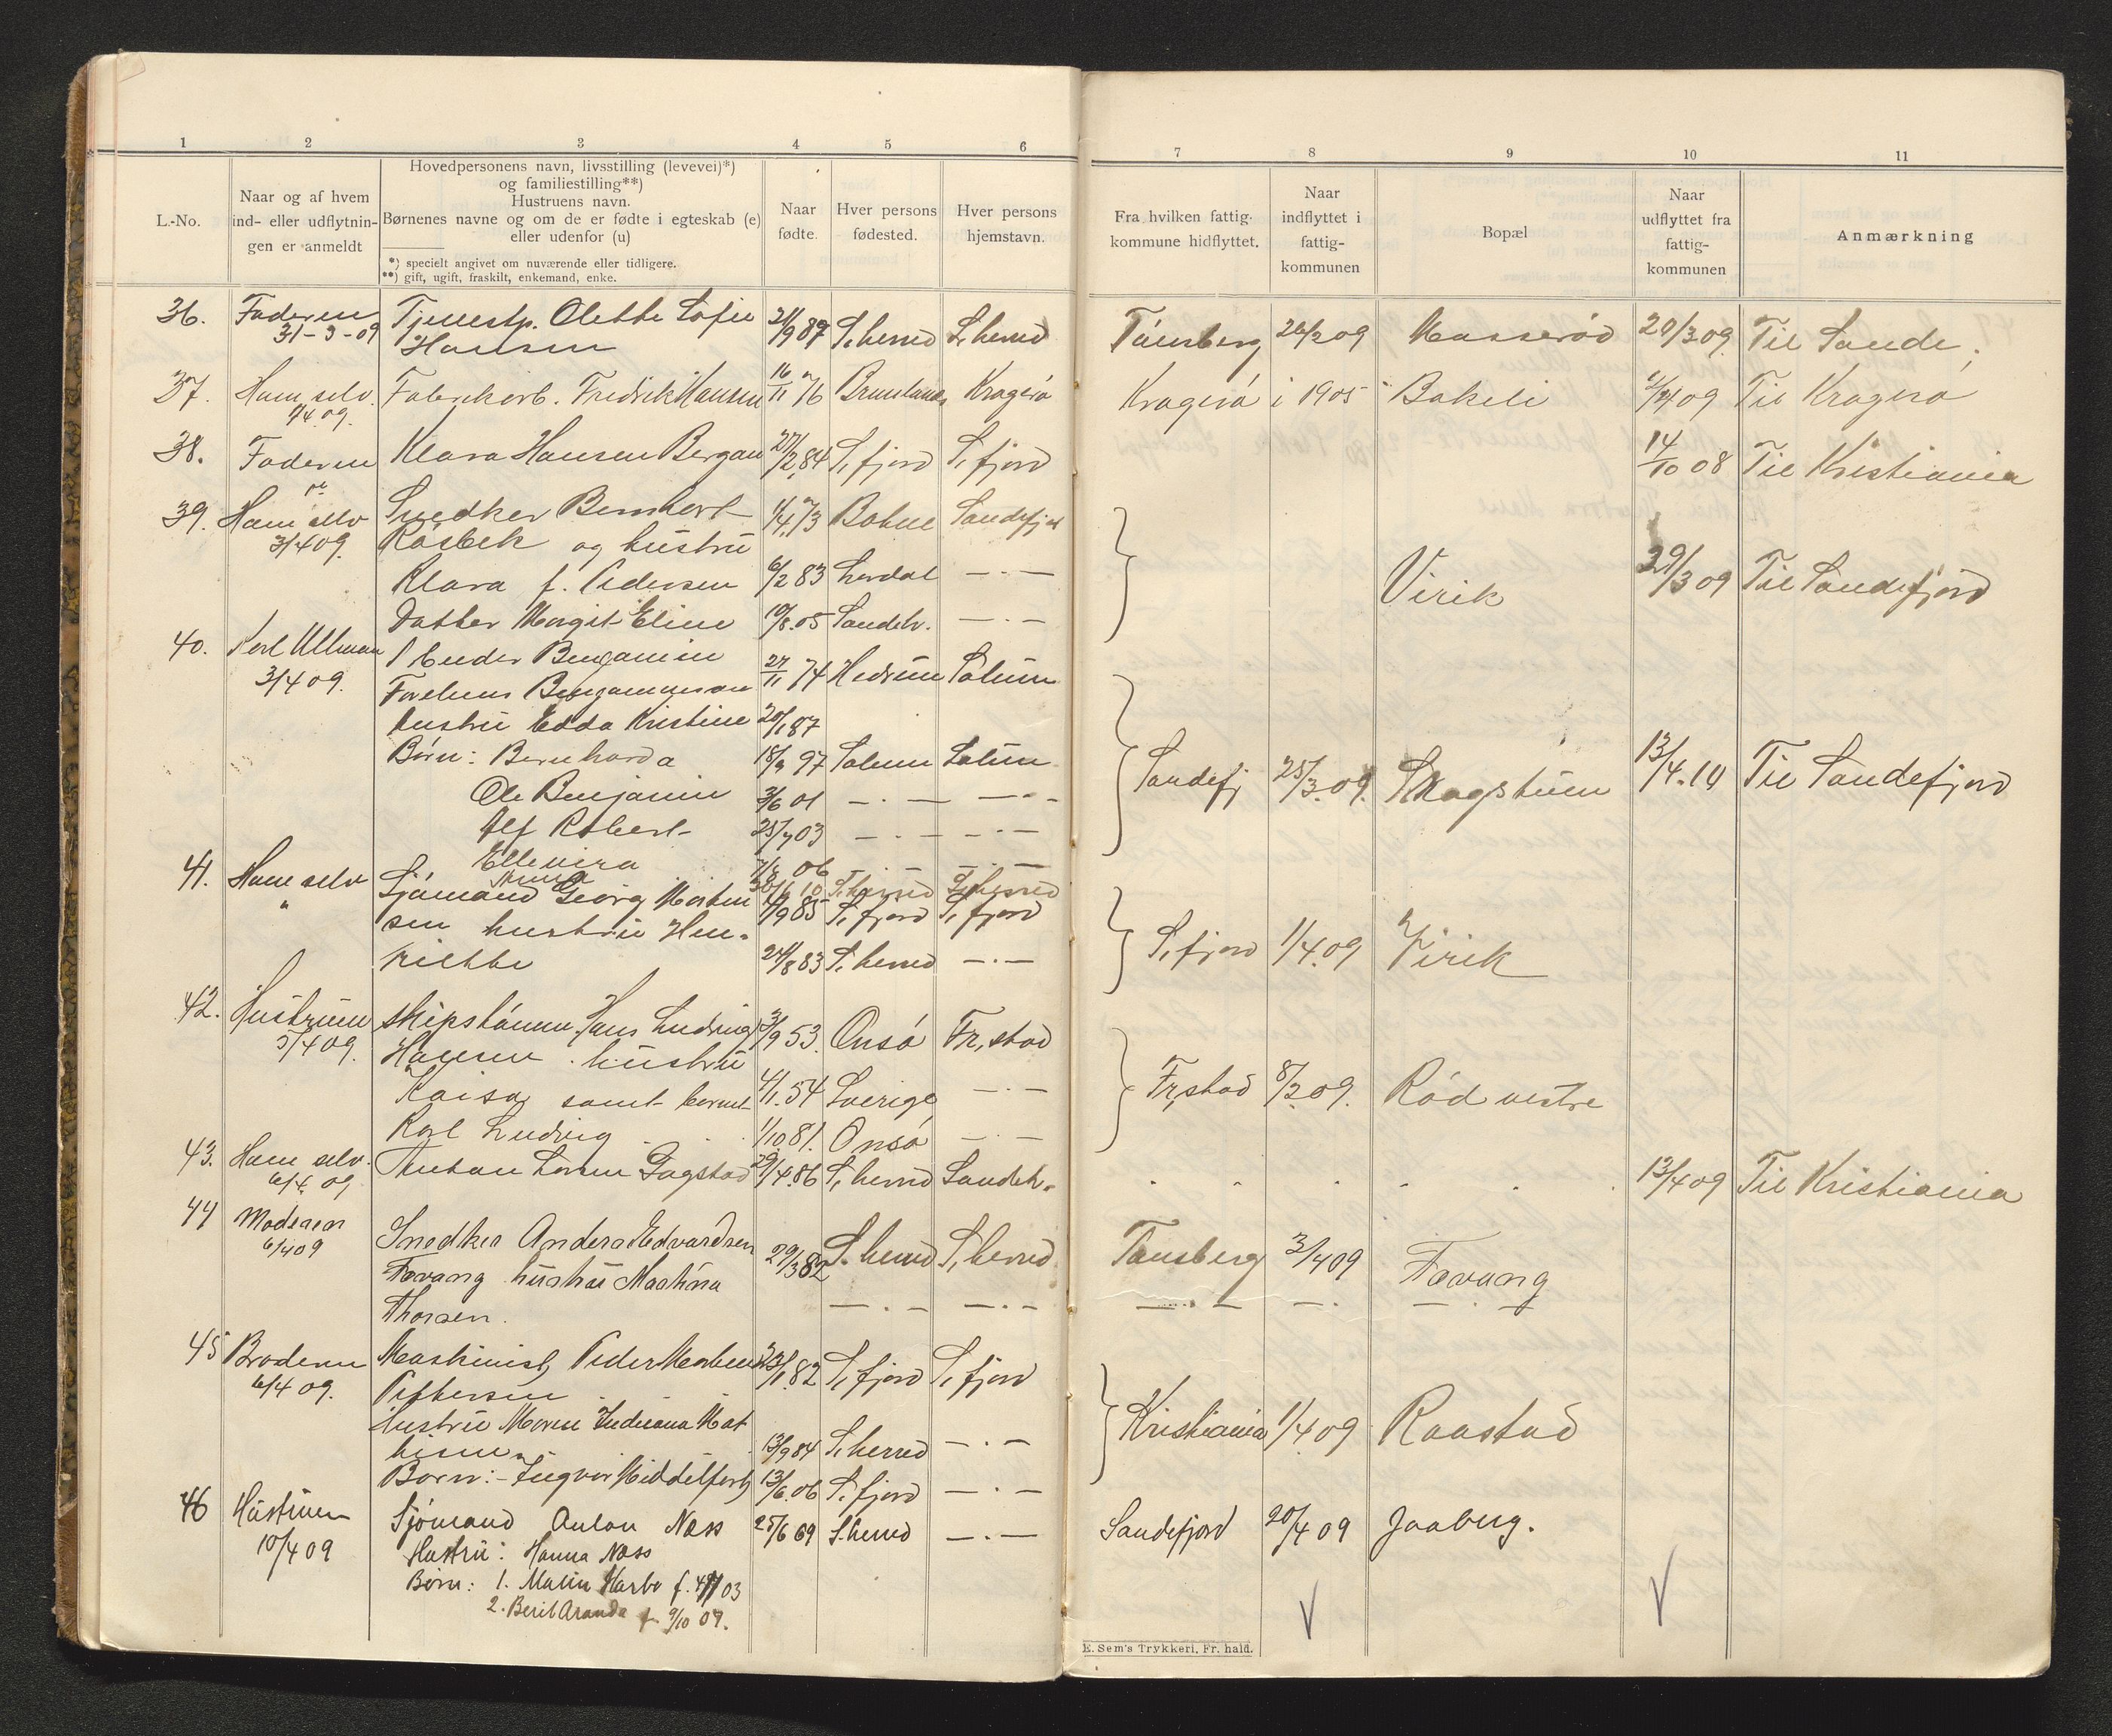 1 2 3 4 5 6 7 8 9 10 11
L.-No.
Naar og af hvem
ind- eller udflytnin-
gen er anmeldt
Hovedpersonens navn, livsstilling (levevei)*)
og familiestilling**)
Hustruens navn.
Børnenes navne og om de er fødte i egteskab (e)
eller udenfor (u)
*) specielt angivet om nuværende eller tidligere.
**) gift, ugift, fraskilt, enkemand, enke.
Naar
fødte.
Hver persons
fødested.
Hver persons
hjemstavn.
Fra hvilken fattig-
kommune hidflyttet.
Naar
indflyttet i
fattig-
kommunen
Bopæl
Naar
udflyttet fra
fattig-
kommunen
Anmærkning
36. Faderen Tjenestp. Olette Sofie 21/9 87 S. herred S. herred Tönsberg 26/2 09 20/3 09 Til Sande.
31-3-09 Hansen
37. Ham selv Fabrikarb. Fredrik Hansen 16/11 76 Brunlanæs Kragerö Kragerö i 1905 Bakeli 2/4 09 Til Kragerö
1/4.09.
38. Faderen Klara Hansen Bergan 27/2.84 S. fjord S. fjord 14/10 08 Til Kristiania
39. Ham selv Snedker Bernhart 1/4.73 Sandefjord
3/4 09. Rösbek og hustru
Klara f. Pedersen 6/2 83 — . — Virik 29/3 09 Til Sandefjord
Datter Margit Eline 10/8.05 Sandeh. — . —
40. Karl Ullman Benjamin
3/4 09. Benjaminsen 27/11 74 Hedrum Solum
hustru Edda Kristine 20/1 87
Börn: Bernharda 18/9 97 Solum Solum Sandefj 25/3.09. Skagstuen 13/4.10 Til Sandefjord
Ole Benjamin 3/6 01 — . — — . —
Alf Robert 25/7 03 — . — — . —
Ellevira 7/8 06 — . — — . —
30/6 10 S. herred S. herred
41. Ham selv Sjömand Georg Morten 4/9 85 S. fjord S. fjord
" sen hustru Hen- S. fjord 1/4.09 Virik
riette 24/8 83 S. herred — . —
42. Hustruen Skipstömm. Hans Ludvig 3/9 53. Onsö Fr,stad
5/4 09. Hansen. hustru
Kaisa samt barnet 4/1.54 Sverige — . — Fr,stad 8/2.09. Röd vestre
Karl Ludvig 1/10 81. Onsö — . —
43. Ham selv. Anton Dagstad 29/4.86 S, herred Sandeh. 13/4 09 Til Kristiania
6/4. 09
44 Moderen
6/4 09 Snedker Anders Edvardsen 29/3 82 S. herred S, herred Tønsberg 3/4 09 Fevang
Fevang hustru Mathina
Thorsen. — . — — . — — . — — . — . —
45 Broderen Maskinist Peder Morten 23/1.82 S, fjord S, fjord
6/4 09. Pettersen
hustru Maren Indiana Mat Kristiania 1/4 09 Raastad
hisen. 13/9 84 S, herred — . —
Barn: - Ingvar Middelfart 13/6.06 S. fjord — . —
46 Hustruen Sjömand Anton Næss 25/6 69 S. herred — . — Sandefjord 20/4 09 Jaaberg.
10/4 09 Hustru: Hanna Næss
Börn: 1. Malin Harbo f. 03
2. Berit Aranda f. 9/10 07.
V V
E. Sem's Trykkeri, Fr. hald.